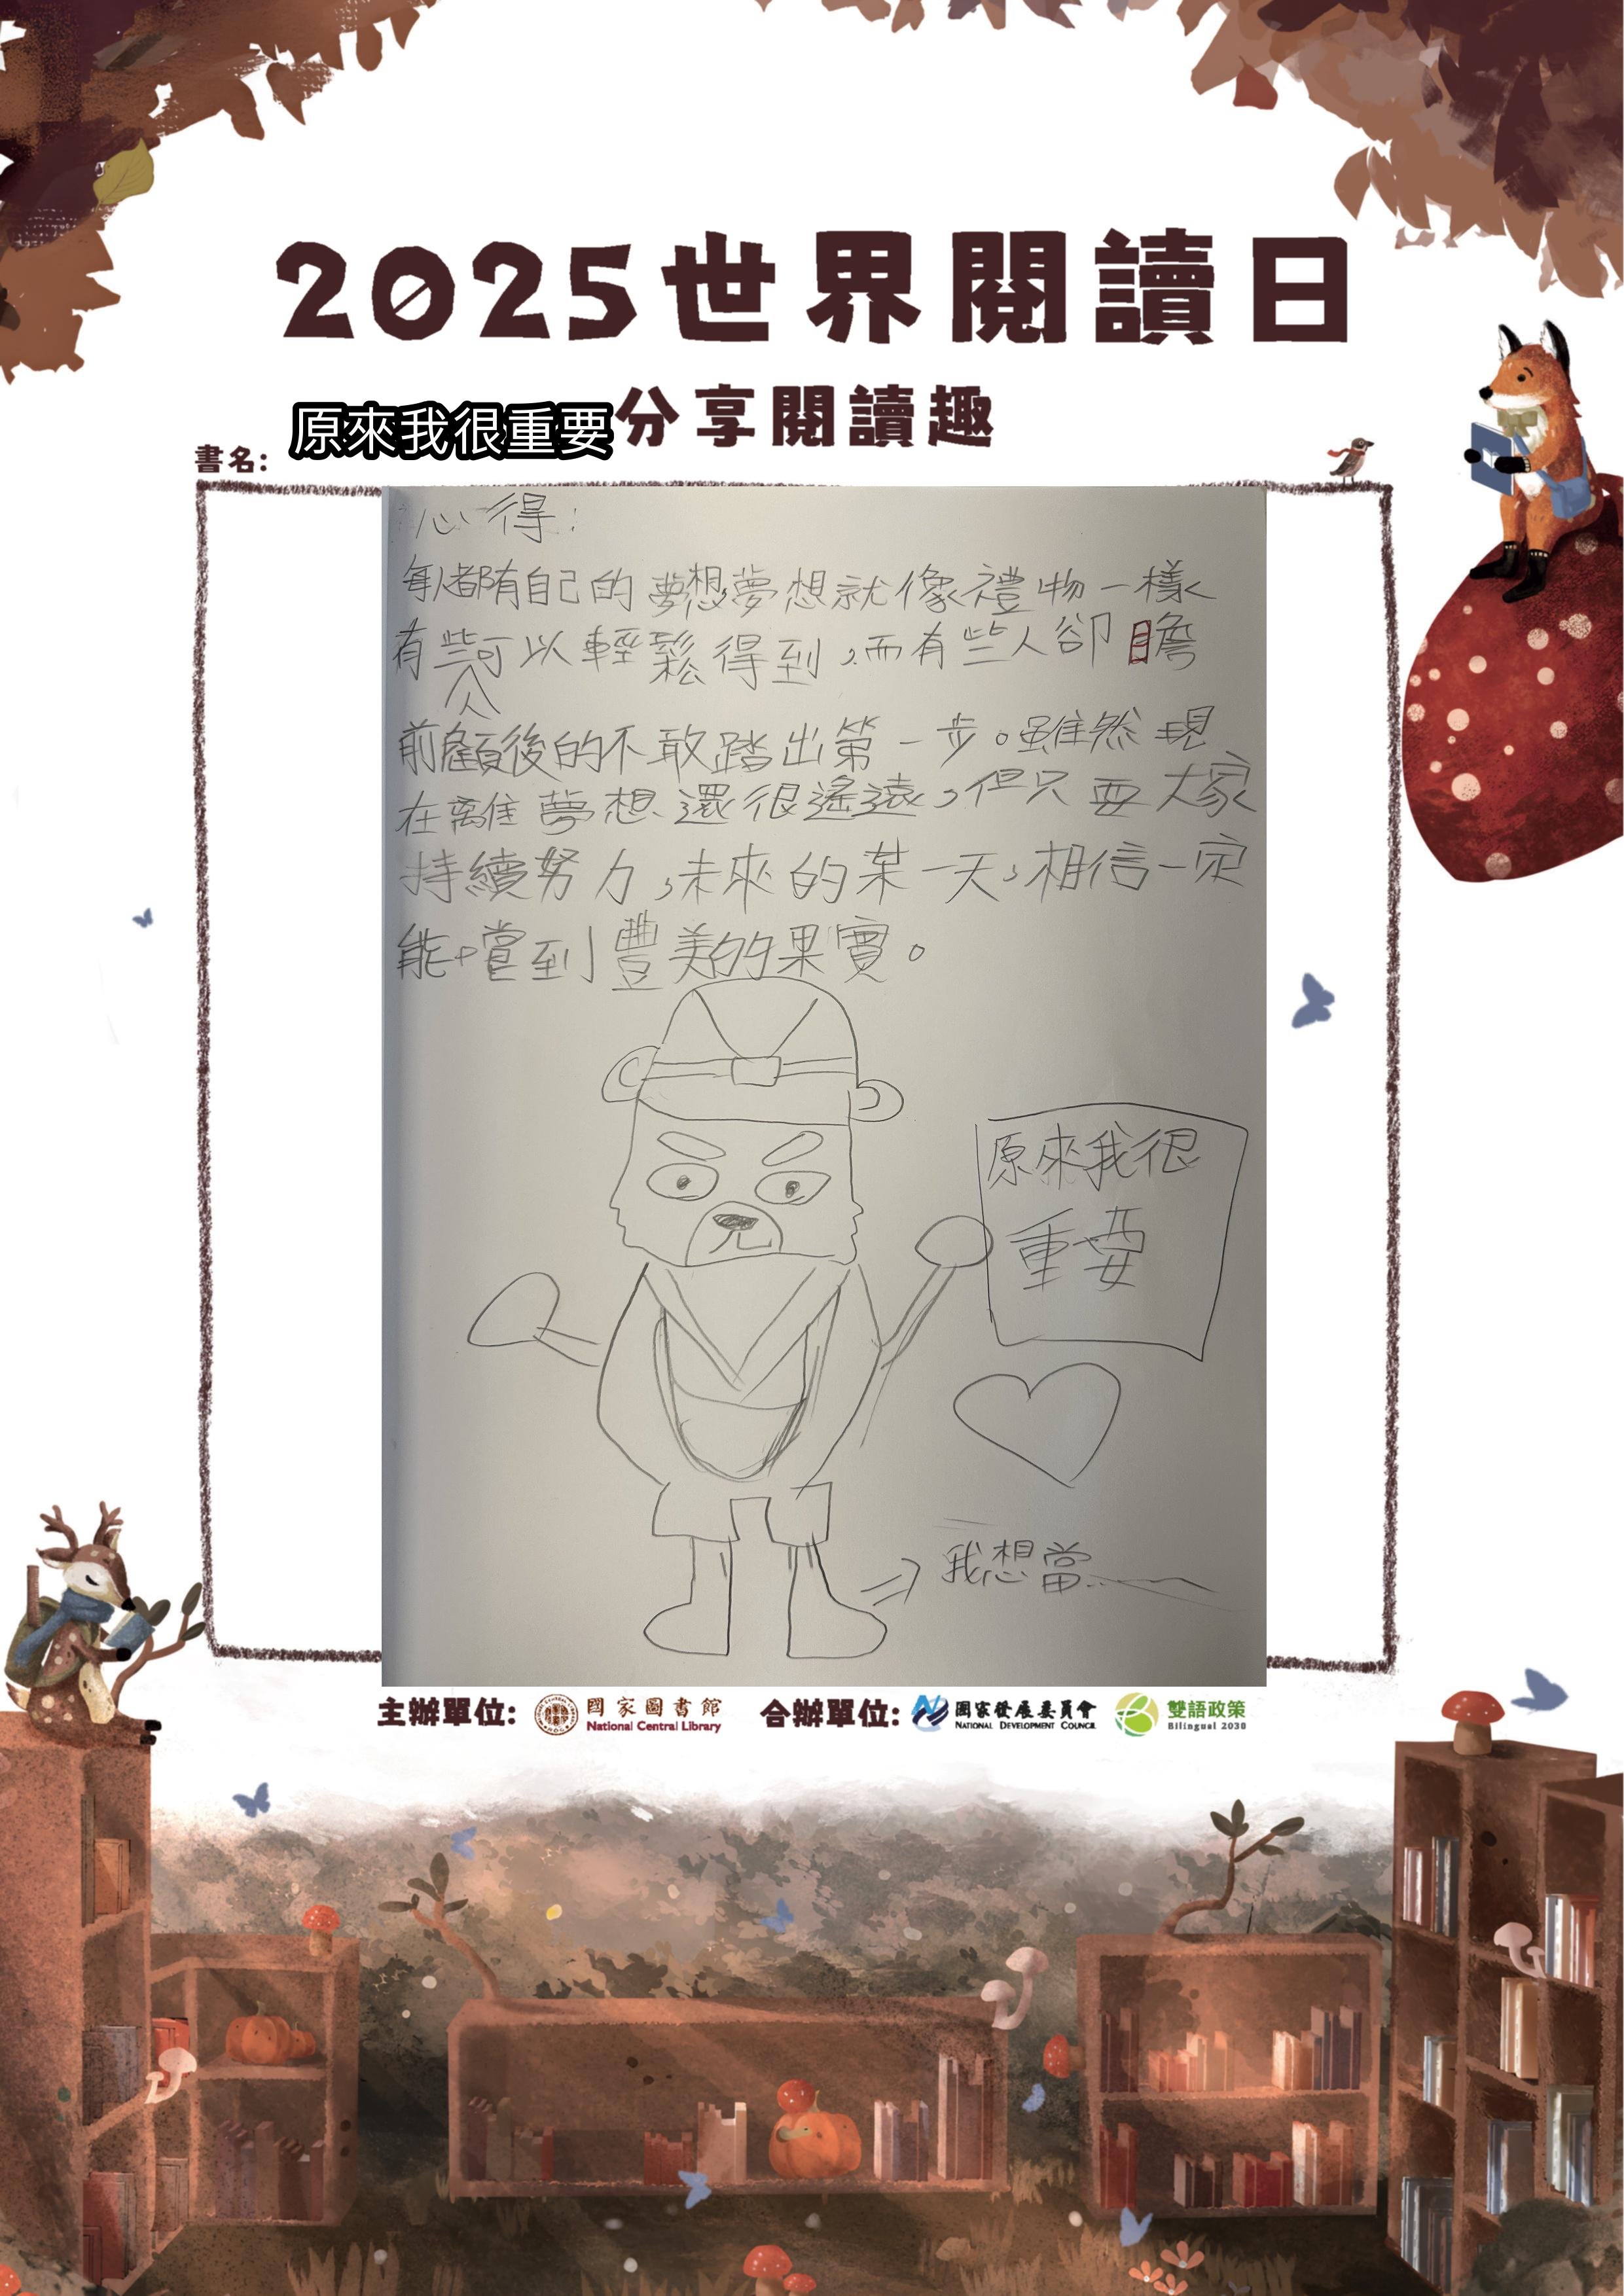 2025世界閱讀日
原來我很重要分享閱讀趣
書名:
心得:
每人都有自己的夢想夢想就像禮物一樣
有些人可以輕鬆得到,而有些人卻瞻
前顧後的不敢踏出第一步。雖然現
在離夢想還很遙遠,但只要大家
持續努力,未來的某一天,相信一定
能嚐到豐美的果實。
原來我很
重要
我想當...
主辦單位: 國家圖書館 National Central Library 合辦單位: 國家發展委員會 NATIONAL DEVELOPMENT COUNCIL 雙語政策 Bilingual 2030